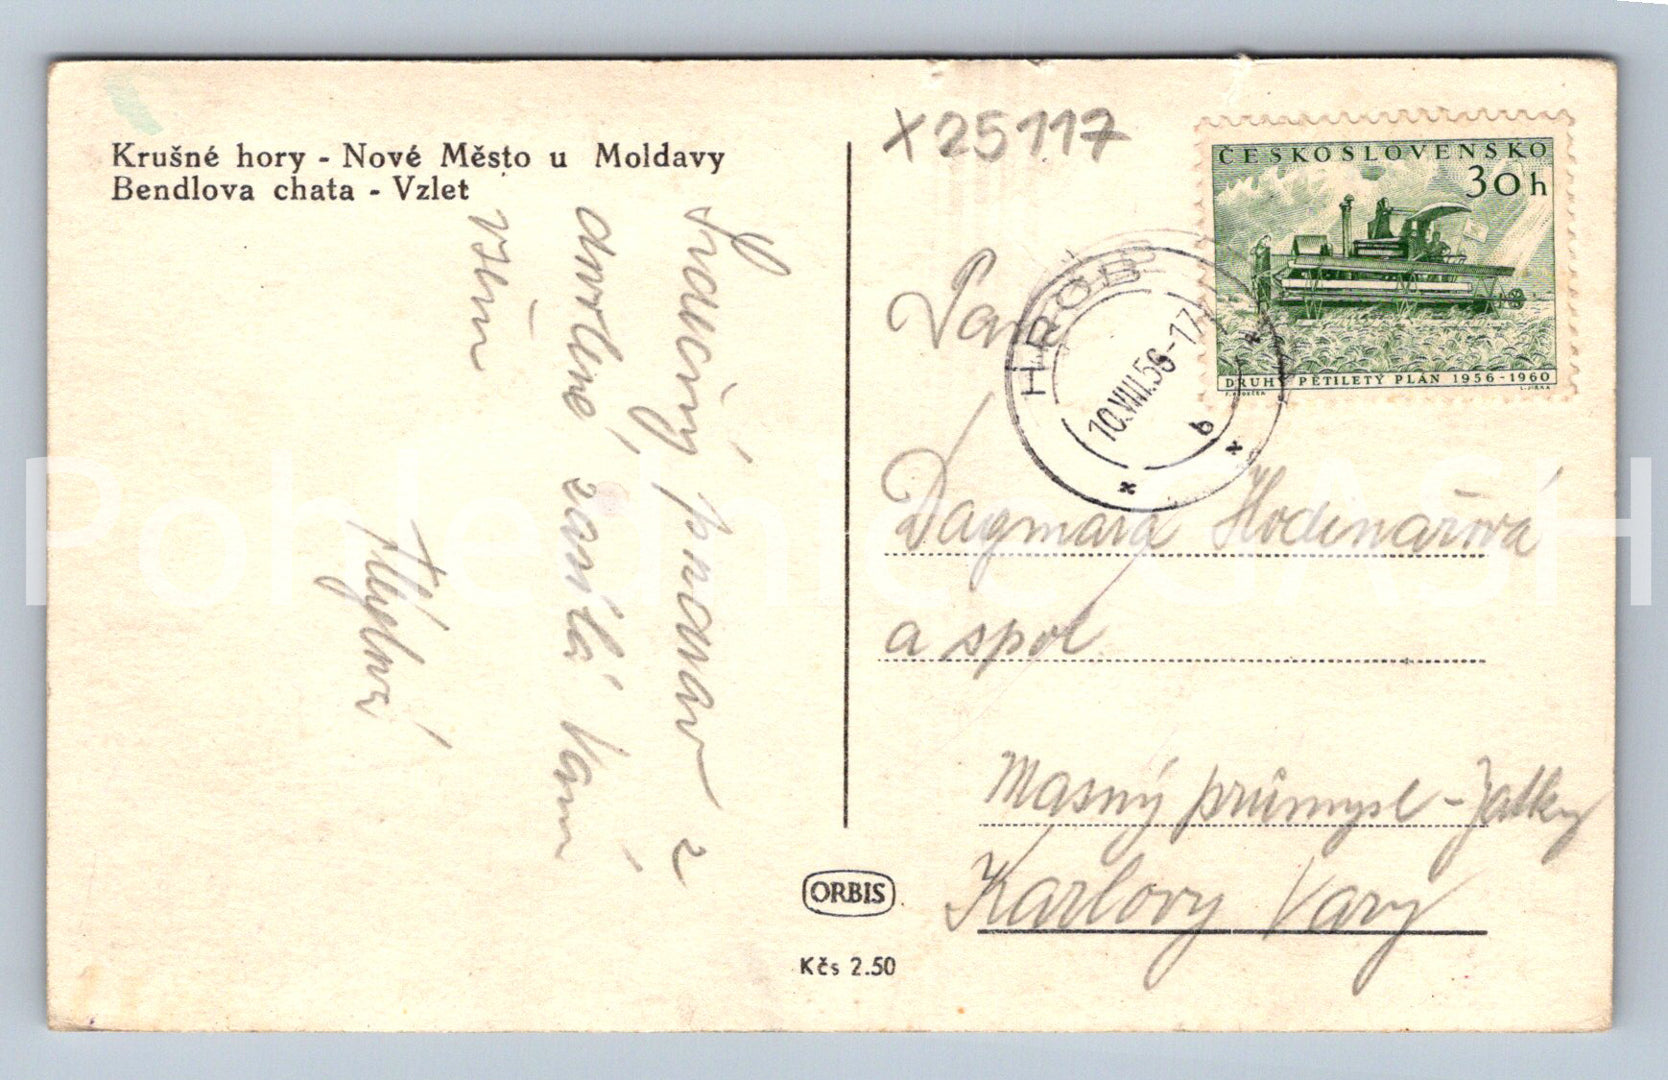 Krušné hory - Nové Město u Moldavy
Bendlova chata - Vzlet
x25117
ČESKOSLOVENSKO
30h
DRUHÝ PĚTILETÝ PLÁN 1956-1960
HROB
10.VIII.56-17
b
Srdečný pozdrav z
dovolené, zasílá Vám
všem
Pan
Dagmara Hodinářová
a spol.
Masný průmysl - Jatky
Karlovy Vary
ORBIS
Kčs 2.50
Pohlednice GASH